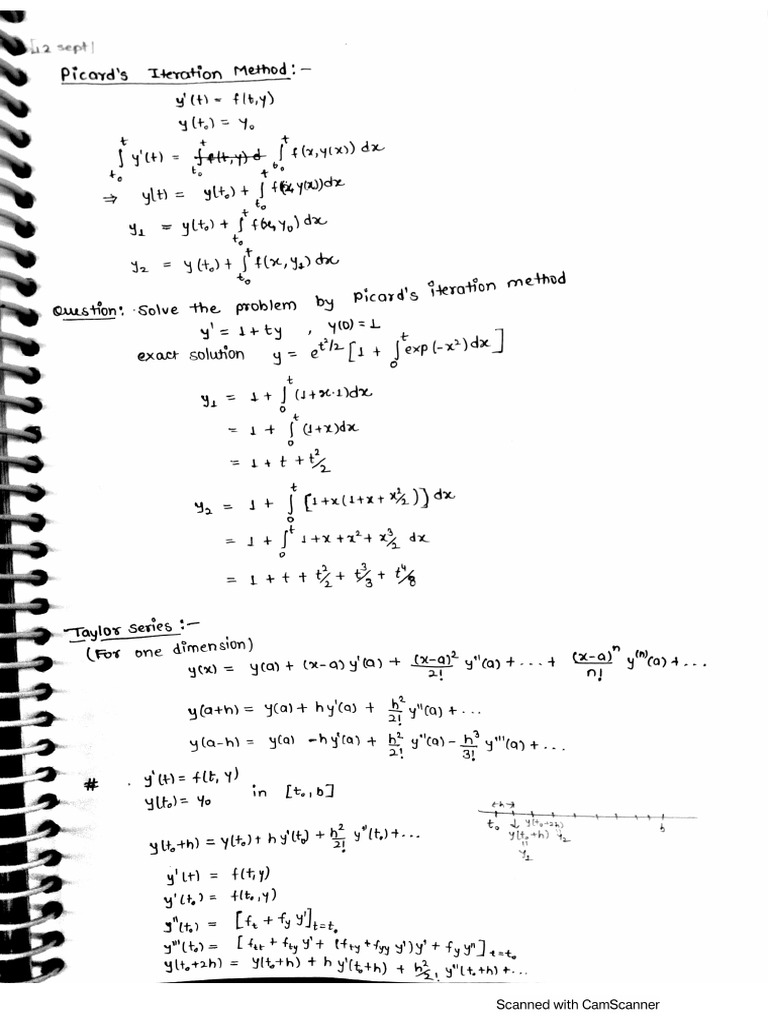 [12 sept]
Picard's Iteration Method:-
y'(t) = f(t,y)
y(t₀) = y₀
∫_{t₀}^{t} y'(t) = ∫_{t₀}^{t} f(x,y(x)) dx
⇒ y(t) = y(t₀) + ∫_{t₀}^{t} f(x,y(x))dx
y₁ = y(t₀) + ∫_{t₀}^{t} f(x,y₀)dx
y₂ = y(t₀) + ∫_{t₀}^{t} f(x,y₁)dx
Question: Solve the problem by picard's iteration method
y' = 1 + ty , y(0) = 1
exact solution y = e^{t²/2} [1 + ∫_{0}^{t} exp(-x²)dx]
y₁ = 1 + ∫_{0}^{t} (1+x·1)dx
= 1 + ∫_{0}^{t} (1+x)dx
= 1 + t + t²/2
y₂ = 1 + ∫_{0}^{t} [1+x(1+x+x²/2)] dx
= 1 + ∫_{0}^{t} 1+x+x²+x³/2 dx
= 1 + t + t²/2 + t³/3 + t⁴/8
Taylor series:-
(For one dimension)
y(x) = y(a) + (x-a) y'(a) + (x-a)²/2! y''(a) + ... + (x-a)ⁿ/n! y⁽ⁿ⁾(a) + ...
y(a+h) = y(a) + hy'(a) + h²/2! y''(a) + ...
y(a-h) = y(a) - hy'(a) + h²/2! y''(a) - h³/3! y'''(a) + ...
# . y'(t) = f(t, y)
y(t₀) = y₀ in [t₀, b]
←h→
t₀ ↓ y(t₀+2h) b
y(t₀+h) y₂
=
y₁
y(t₀+h) = y(t₀) + h y'(t₀) + h²/2! y''(t₀) + ...
y'(t) = f(t,y)
y'(t₀) = f(t₀,y)
y''(t₀) = [f_t + f_y y']_{t=t₀}
y'''(t₀) = [f_tt + f_ty y' + (f_ty + f_yy y')y' + f_y y'']_{t=t₀}
y(t₀+2h) = y(t₀+h) + h y'(t₀+h) + h²/2! y''(t₀+h) + ...
Scanned with CamScanner